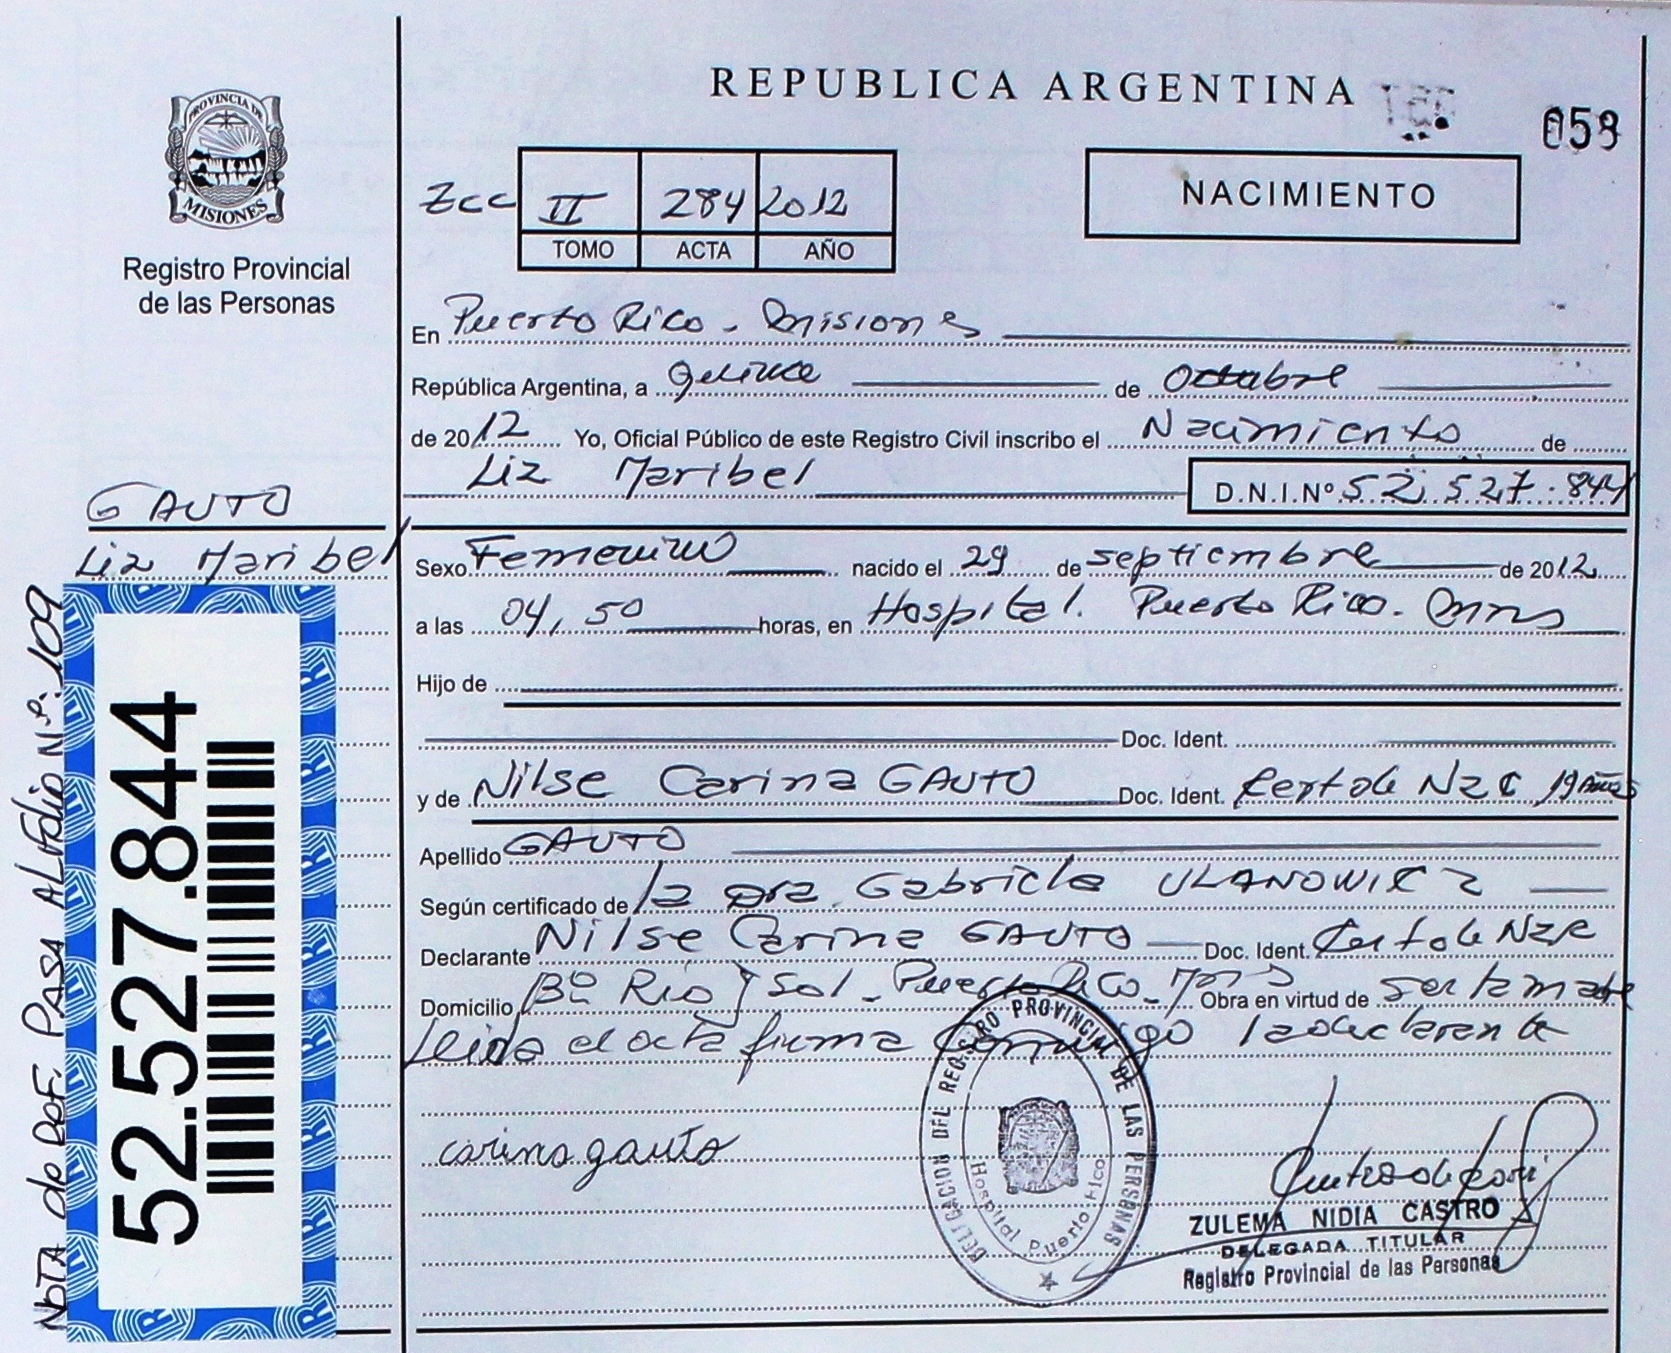 REPUBLICA ARGENTINA
059
PROVINCIA DE
MISIONES
Registro Provincial
de las Personas
Zcc II 284 2012
TOMO ACTA AÑO
NACIMIENTO
En Puerto Rico - Misiones
República Argentina, a Quince de Octubre
de 2012 Yo, Oficial Público de este Registro Civil inscribo el Nacimiento de
Liz Maribel D.N.I.Nº 52.527.844
GAUTO
Liz Maribel
Sexo Femenino nacido el 29 de septiembre de 2012
a las 04,50 horas, en Hospital. Puerto Rico. Mnes
Hijo de
Doc. Ident.
y de Nilse Carina GAUTO Doc. Ident. Cert de Nac 19 Años
Apellido GAUTO
Según certificado de la Dra. Gabriela ULANOWICZ
Declarante Nilse Carina GAUTO Doc. Ident. Cert de Nac
Domicilio Bº Rio y Sol - Puerto Rico - Mnes Obra en virtud de ser la madre
Leida el acta firma conmigo la declarante
carina gauto
DELEGACION DEL REGISTRO PROVINCIAL DE LAS PERSONAS
Hospital Puerto Rico
ZULEMA NIDIA CASTRO
DELEGADA TITULAR
Registro Provincial de las Personas
52.527.844
NOTA de REF. PASA AL folio Nº. 109